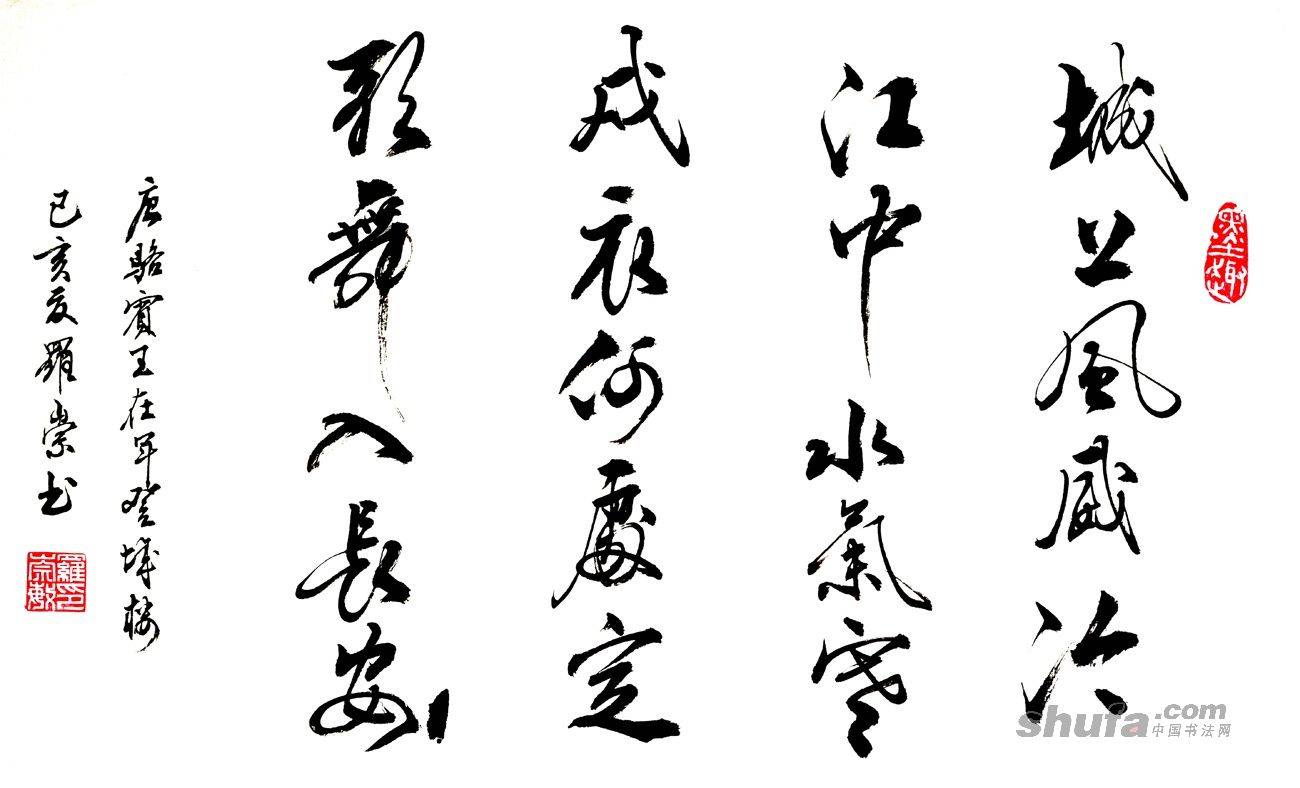 墨趣
城上風威冷
江中水氣寒
戎衣何處定
歌舞入長安
唐駱賓王在軍登城樓
己亥夏羅崇书
羅崇敏印
shufa.com
中国书法网